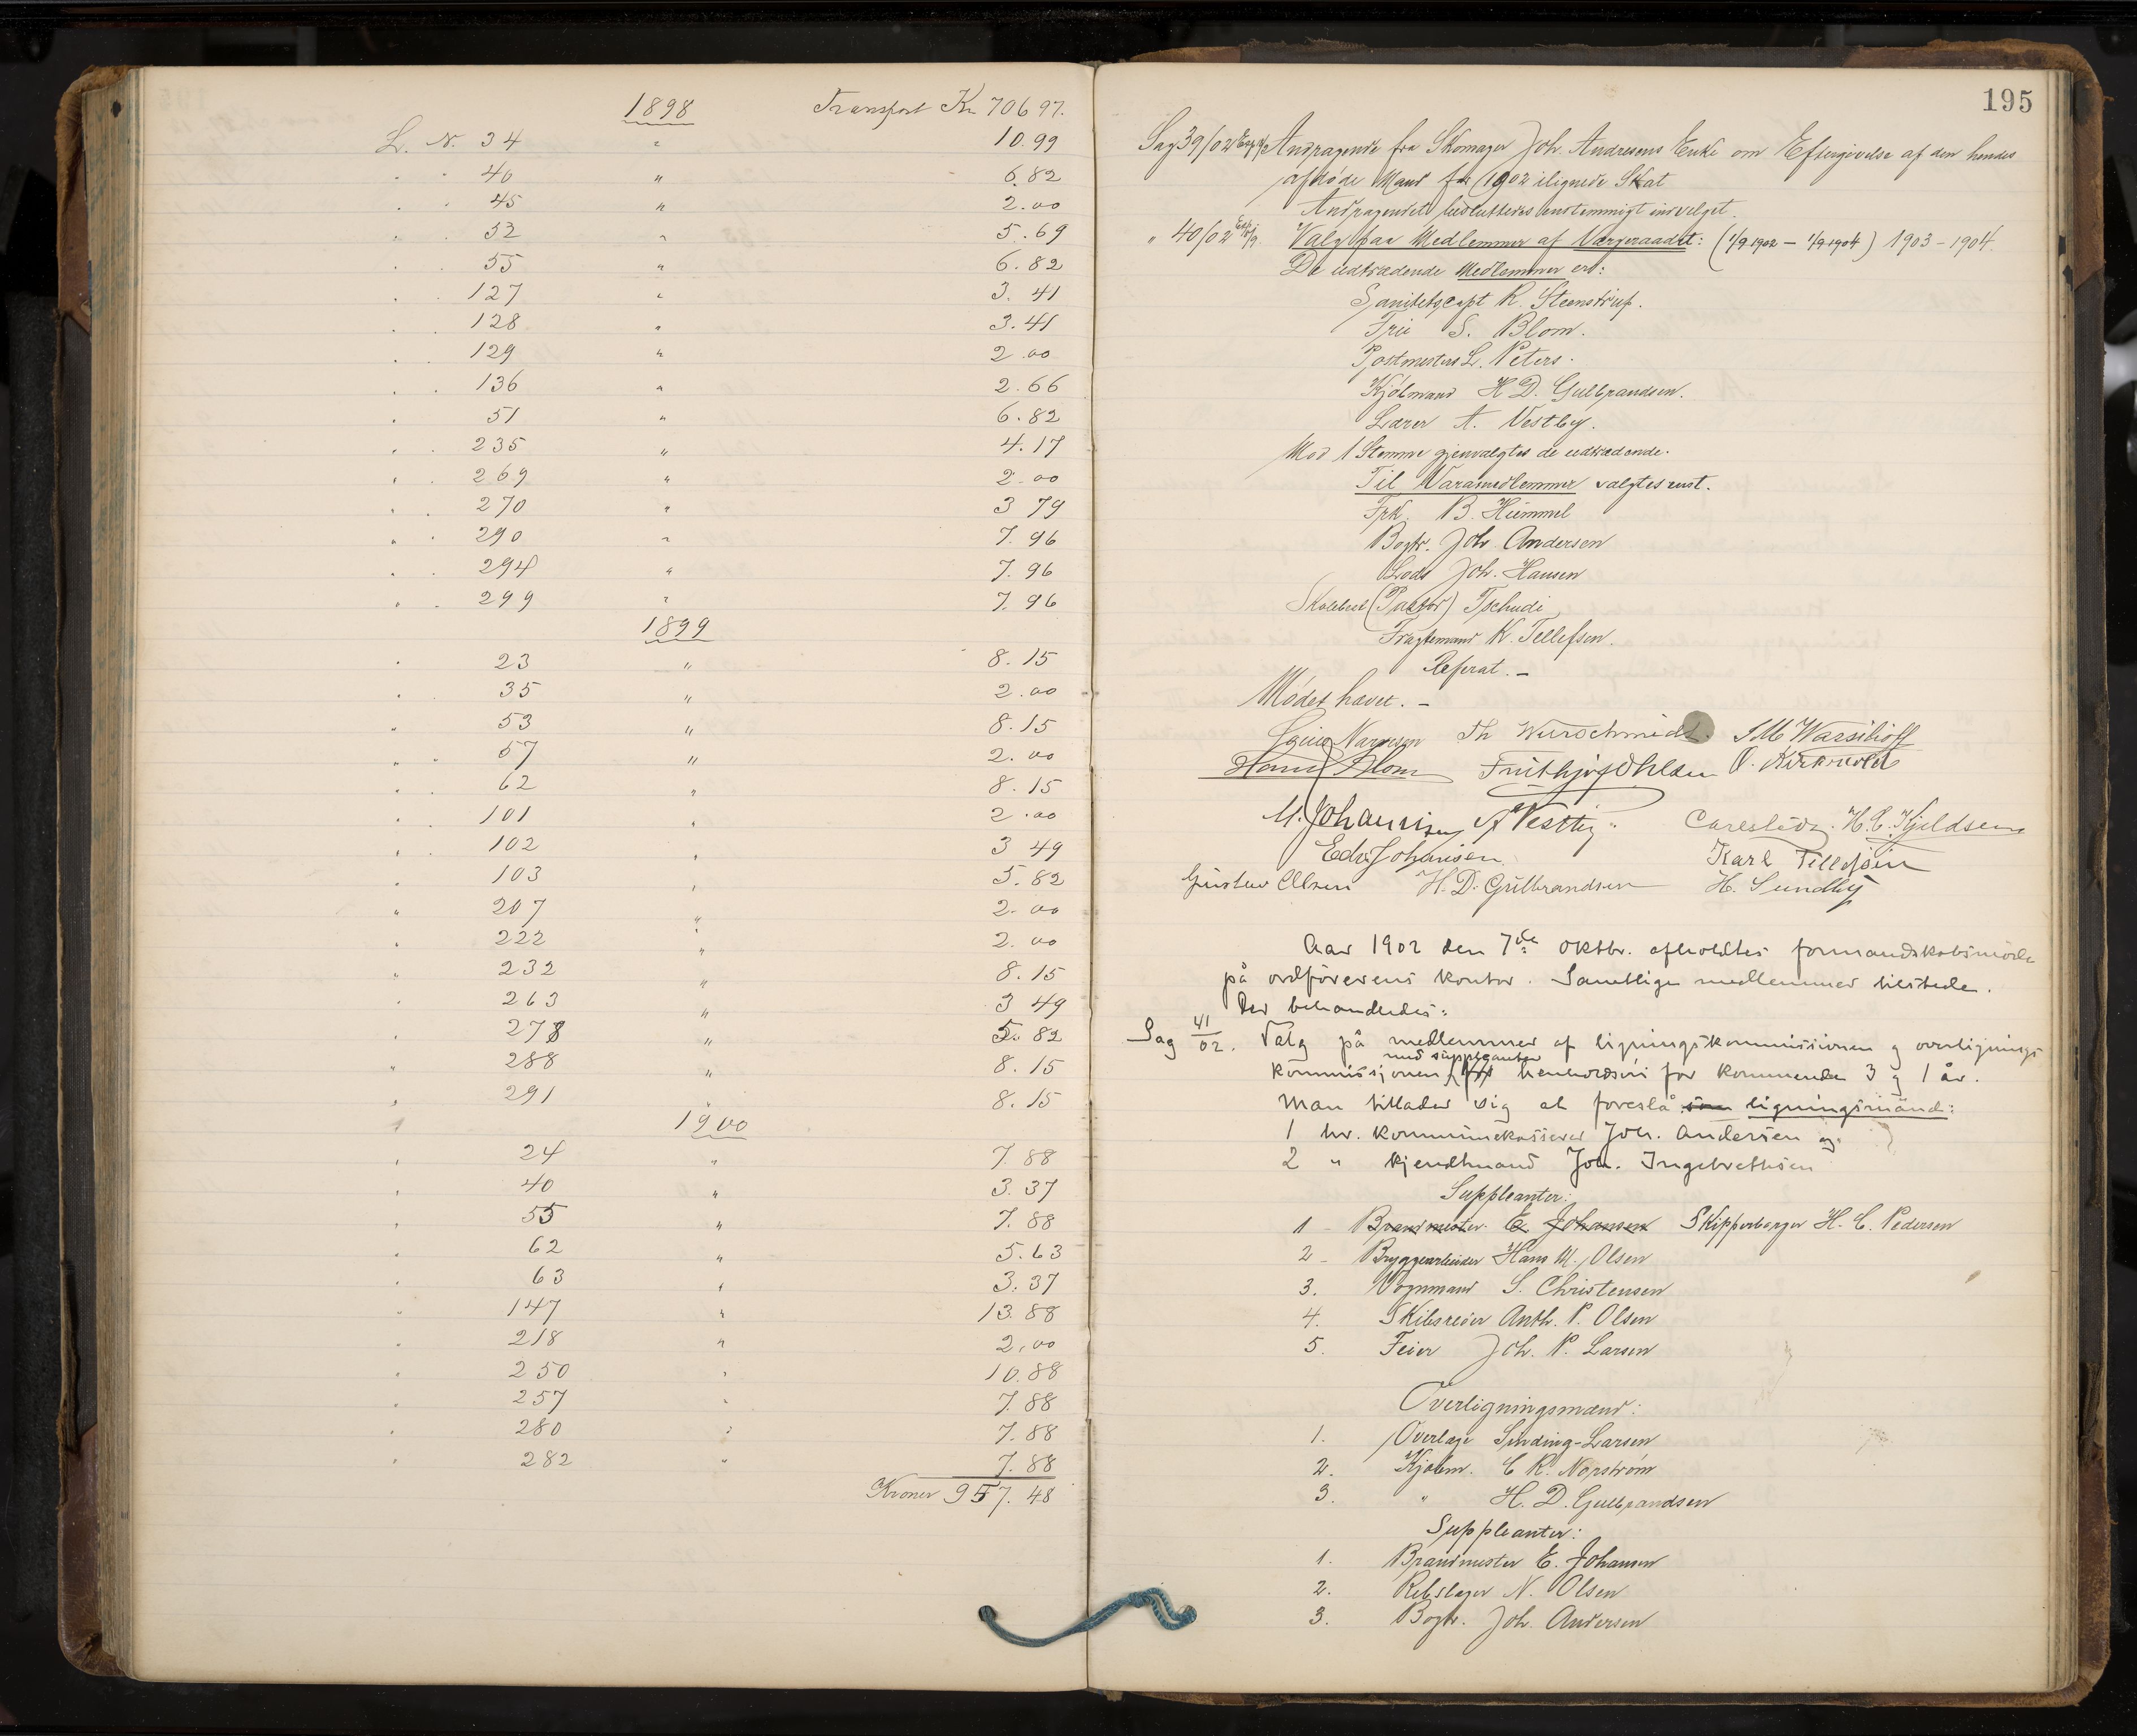 1898 Transport Kr. 706 97.
L. N. 34 " 10.99
" " 40 " 6.82
" " 45 " 2.00
" " 52 " 5.69
" " 55 " 6.82
" " 127 " 3.41
" " 128 " 3.41
" " 129 " 2.00
" " 136 " 2.66
" 51 " 6.82
" " 235 " 4.17
" " 269 " 2.00
" " 270 " 3 79
" " 290 " 7.96
" " 294 " 7.96
" " 299 " 7.96
1899
" 23 " 8.15
" " 35 " 2.00
" 53 " 8.15
" " 57 " 2.00
" " 62 " 8.15
" " 101 " 2.00
" " 102 " 3 49
" 103 " 5.82
" 207 " 2.00
" 222 " 2.00
" 232 " 8.15
" 263 " 3 49
" 278 " 5.82
" 288 " 8.15
" 291 " 8.15
1900
" 24 " 7.88
" 40 " 3.37
" 55 " 7.88
" 62 " 5.63
" 63 " 3.37
" 147 " 13.88
" 218 " 2,00
" 250 " 10.88
" 257 " 7.88
" 280 " 7.88
" 282 " 7.88
Kroner 957.48
195
Sag 39/02 Andragende fra Skomager Joh. Andresens Enke om Eftergivelse af den hendes
afdøde Mand for 1902 ilignede Skat
Andragendet besluttedes enstemmigt indvilget.
" 40/02 Valg paa Medlemmer af Værgeraadet: (1/9 1902 – 1/9 1904) 1903–1904.
De udtrædende Medlemmer er:
Sanitetscapt R. Steenstrup.
Fru S. Blom.
Postmester L. Peters.
Kjøbmand H. D. Gulbrandsen.
Lærer A. Vestby.
Mod 1 Stemme gjenvalgtes de udtrædende.
Til Varamedlemmer valgtes enst.
Frk. B. Hümmel
Bogtr. Joh. Andersen
Lods Joh. Hansen
(Pastor) Tschudi
Fragtemand K. Tellefsen.
Referat. –
Mødet hævet. –
Th Wurschmidt.
Blom Frithjof Ohlsen O. Kirkevold
M. Johannisen A Vestby. H. C. Kjeldsen
Edv. Johansen Karl Tellefsen
Gustav Olsen H. D. Gulbrandsen H. Sundby
Aar 1902 den 7de oktbr. afholdtes formandskabsmøde
på ordförerens kontor. Samtlige medlemmer tilstede.
Der behandledes:
Sag 41/02. Valg på medlemmer af ligningskommissionen og overlignings
kommissjonen med suppleanter henholdsvis for kommende 3 og 1 år.
Man tillader sig at foreslå som ligningsmænd:
1 hr. kommunekasserer Joh. Andersen og
2 " kjendtmand Joh. Ingebrethsen
Suppleanter:
1 – Brandmester E. Johansen Skipperborger H. C. Pedersen
2 – Bryggearbeider Hans M. Olsen
3. Vognmand S. Christensen
4. Skibsreder Anth. P. Olsen
5. Feier Joh. P. Larsen
Overligningsmænd:
1. Overlæge Sinding-Larsen
2. Kjøbm. C R. Norstrøm
3. " H. D. Gulbrandsen
Suppleanter:
1. Brandmester E. Johansen
2. Rebslager N. Olsen
3. Bogtr. Joh. Andersen